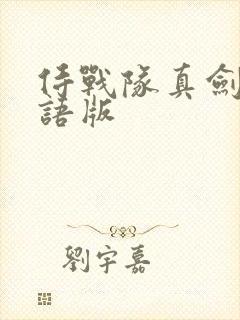 侍戰隊真劍
語版
劉宇嘉